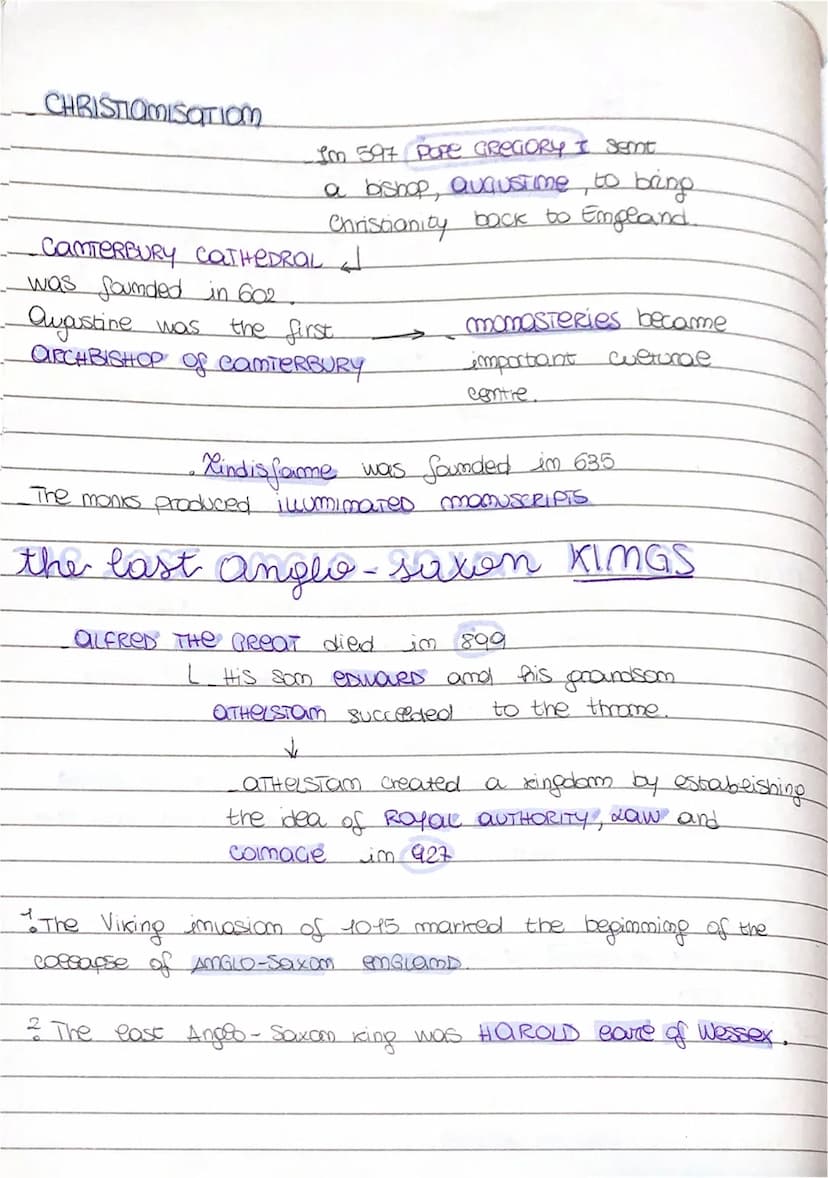 CHRISTIANISATION
In 597 POPE GREGORY I sent
a bishop, AUGUSTINE, to bring
Christianity back to England.
CANTERBURY CATHEDRAL ↲
was founded in 602.
Augustine was the first → MONASTERIES became
ARCHBISHOP OF CANTERBURY important cultural
centre.
. Lindisfarne was founded in 635
The monks produced ILLUMINATED MANUSCRIPTS
the last anglo-saxon KINGS
ALFRED THE GREAT died in 899
L His son EDWARD and his grandson
ATHELSTAN succeeded to the throne.
↓
ATHELSTAN created a kingdom by establishing
the idea of ROYAL AUTHORITY, LAW and
COINAGE in 927
1. The Viking invasion of 1015 marked the beginning of the
collapse of ANGLO-SAXON ENGLAND.
2. The last Anglo-Saxon king was HAROLD earl of Wessex.